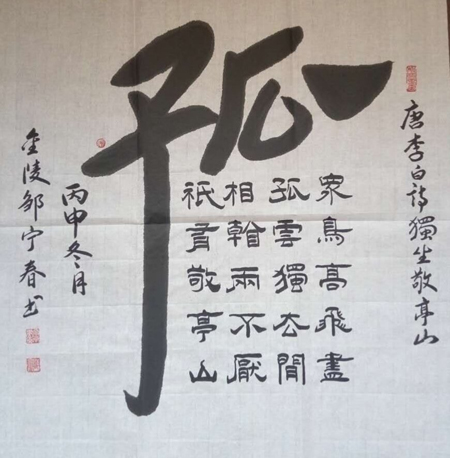 唐李白詩獨坐敬亭山
孤
衆鳥高飛盡
孤雲獨去閒
相看兩不厭
祇有敬亭山
丙申冬月
金陵邹宁春书